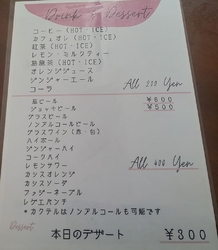 Drink & Dessert
コーヒー (HOT・ICE)
カフェオレ (HOT・ICE)
紅茶 (HOT・ICE)
レモン・ミルクティー
烏龍茶 (HOT・ICE)
オレンジジュース
ジンジャーエール
コーラ
All 270 Yen
瓶ビール ¥600
ジョッキビール ¥500
グラスビール
ノンアルコールビール
グラスワイン (赤・白)
ハイボール
ジンジャーハイ
コークハイ
レモンサワー
All 400 Yen
カシスオレンジ
カシスソーダ
ファジーネーブル
レゲエパンチ
*カクテルはノンアルコールも可能です
Dessert
本日のデザート ¥300